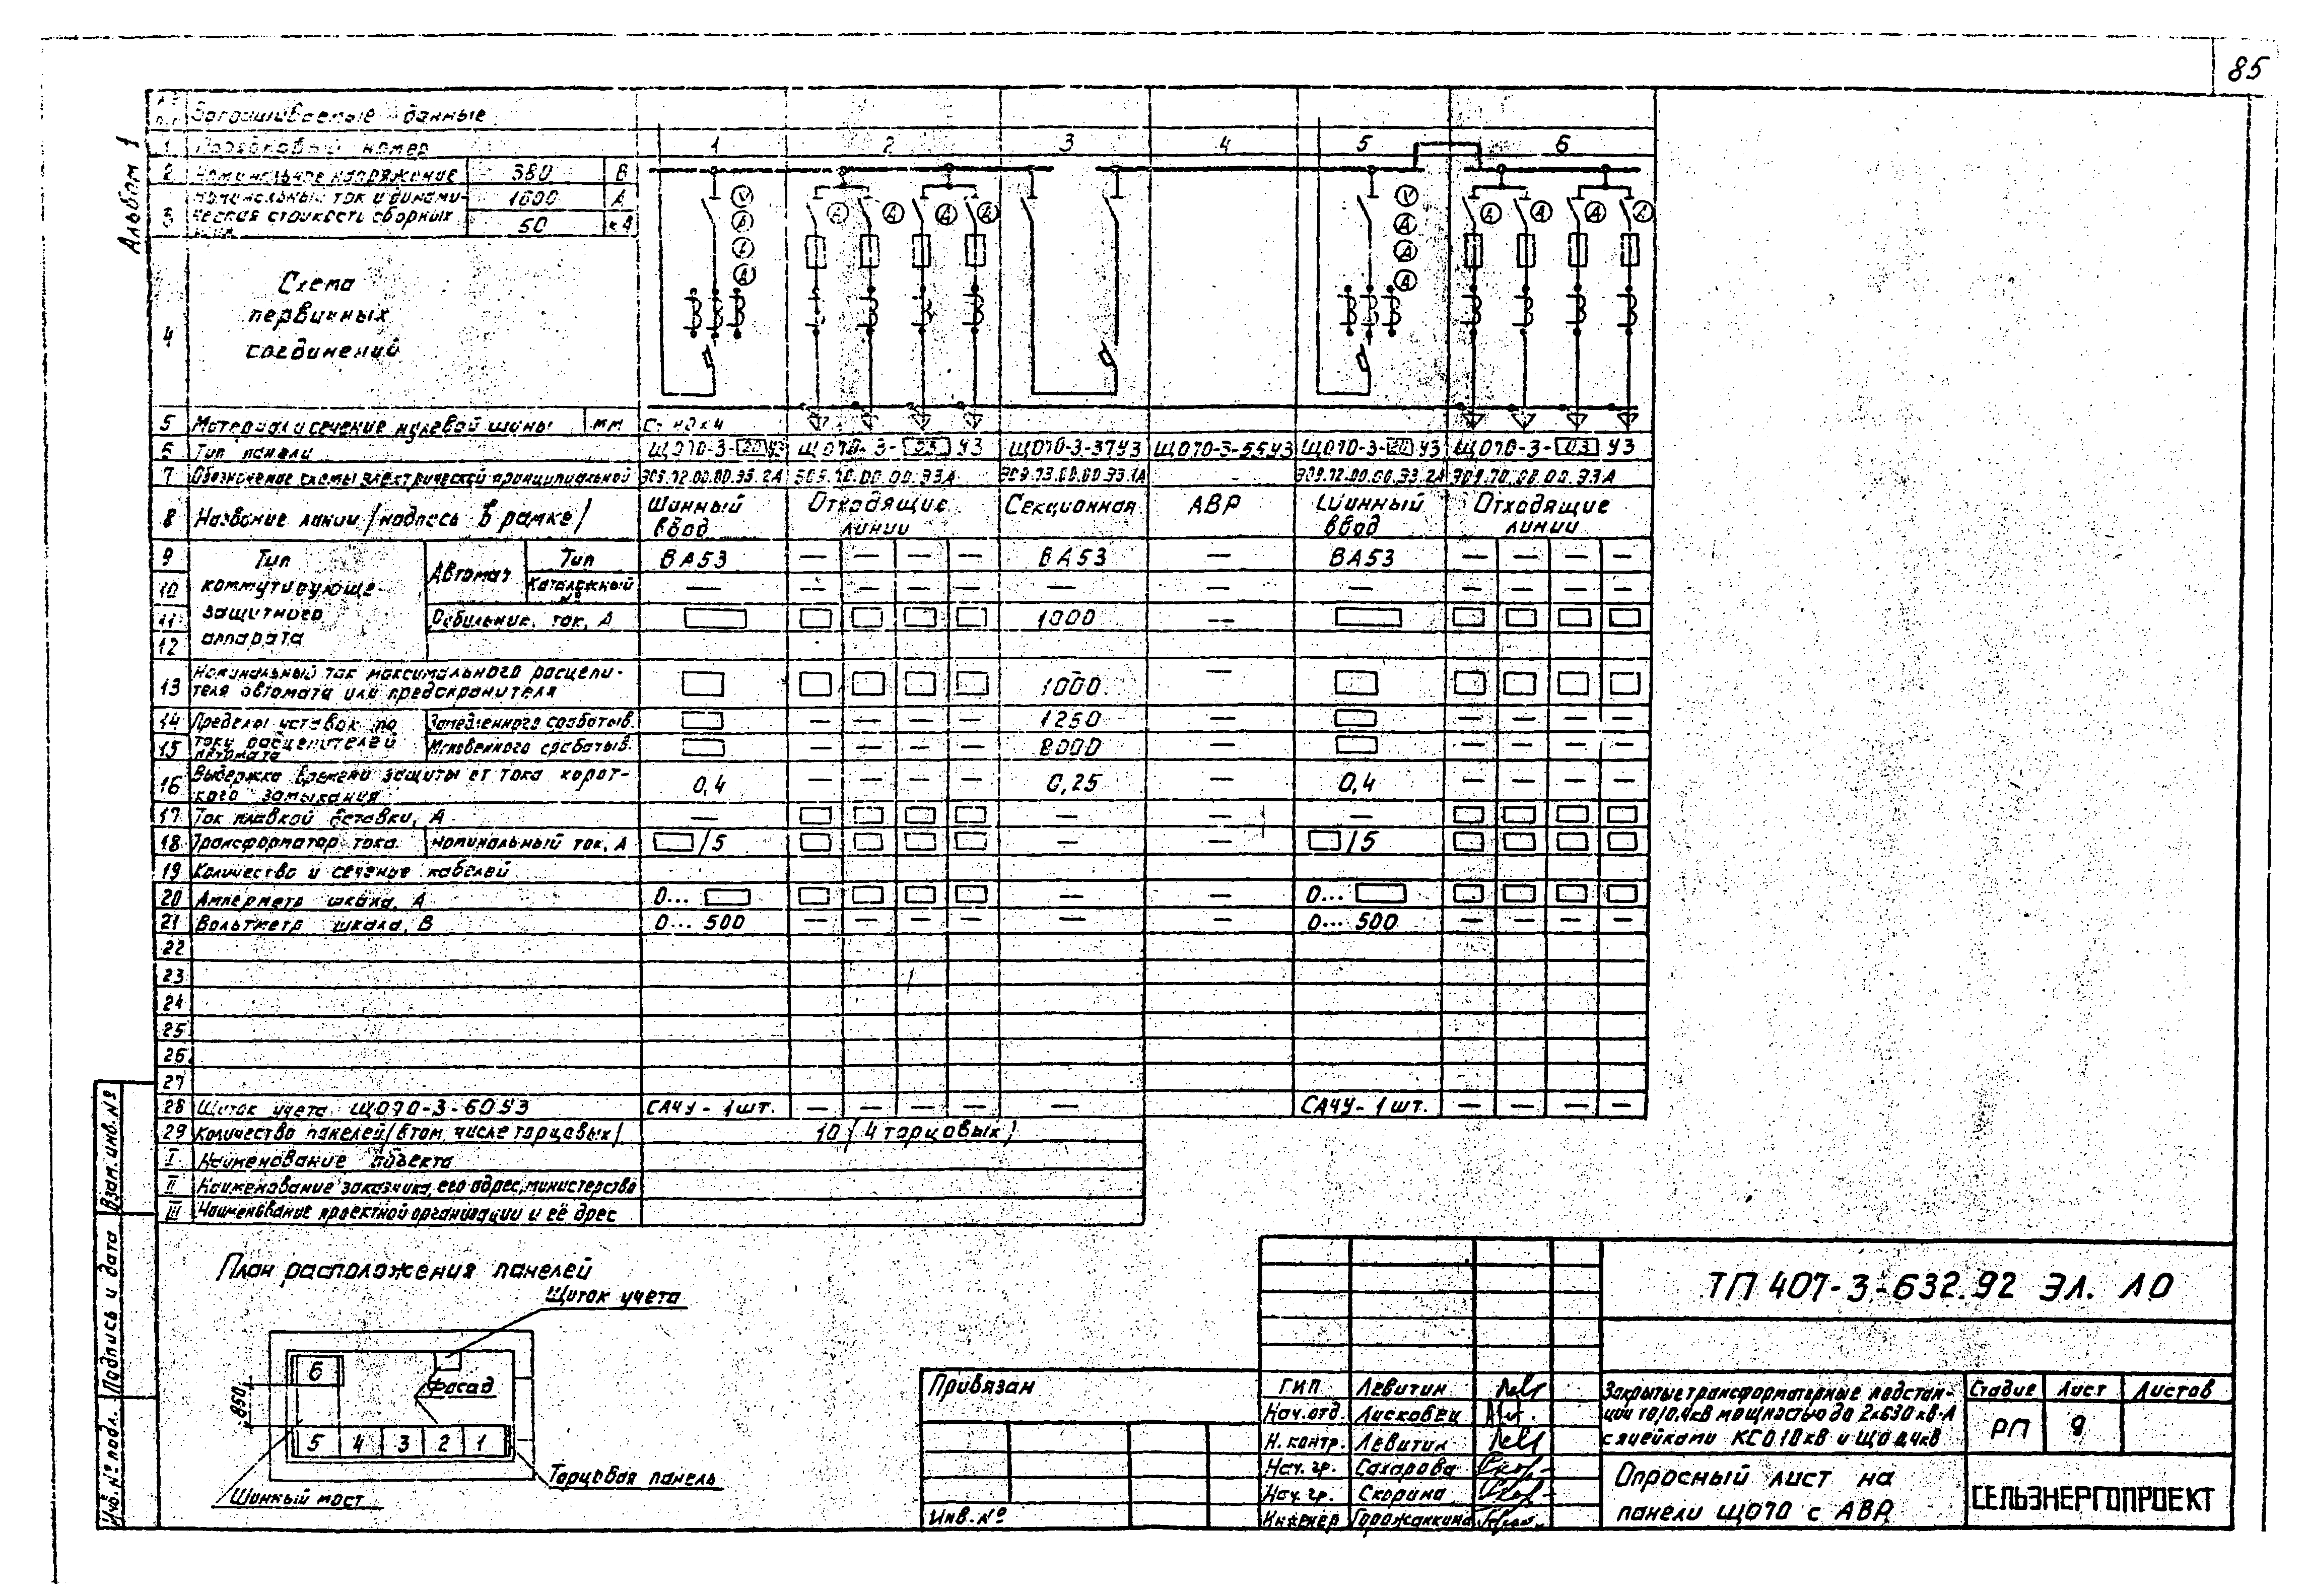 85
Альбом 1
Запрашиваемые данные
1 Порядковый номер 1 2 3 4 5 6
2 Номинальное напряжение 380 В
3 Номинальный ток и динами- 1600 А
ческая стойкость сборных 50 кА
шин
4 Схема
первичных
соединений
5 Материал и сечение нулевой шины мм Ст 40х4
6 Тип панели ЩО70-3-20У3 ЩО70-3-03У3 ЩО70-3-37У3 ЩО70-3-55У3 ЩО70-3-20У3 ЩО70-3-03У3
7 Обозначение схемы электрической принципиальной
8 Название линии /надпись в рамке/ Шинный ввод Отходящие линии Секционная АВР Шинный ввод Отходящие линии
9 Тип Автомат Тип ВА53 — — — — ВА53 — ВА53 — — — —
10 коммутирующе- Каталожный № — — — — — — — — — — — —
11 защитного Рубильник, ток, А 1000 —
12 аппарата
13 Номинальный ток максимального расцепи-
теля автомата или предохранителя 1000 —
14 Пределы уставок по Замедленного срабатыв. — — — — 1250 — — — — —
15 току расцепителей автомата Мгновенного срабатыв. — — — — 8000 — — — — —
16 Выдержка времени защиты от тока корот-
кого замыкания 0,4 — — — — 0,25 — 0,4 — — — —
17 Ток плавкой вставки, А — — — —
18 Трансформатор тока номинальный ток, А /5 — — /5
19 Количество и сечение кабелей
20 Амперметр шкала, А 0... — — 0...
21 Вольтметр шкала, В 0... 500 — — — — — — 0... 500 — — — —
22
23
24
25
26
27
28 Щиток учета ЩО70-3-60У3 САЧУ - 1 шт. — — — — — САЧУ - 1 шт. — — — —
29 Количество панелей /в том числе торцовых/ 10 (4 торцовых)
I Наименование объекта
II Наименование заказчика, его адрес, министерство
III Наименование проектной организации и её адрес
План расположения панелей
Щиток учета
6
Фасад
850
5 4 3 2 1
Торцовая панель
Шинный мост
Взам. инв. №
Подпись и дата
Инв. № подл.
Привязан
Инв. №
ГИП Левитин
Нач. отд. Лисковец
Н. контр. Левитин
Нач. гр. Сахарова
Нач. гр. Скорина
Инженер Горожанкина
ТП 407-3-632.92 ЭЛ. ЛО
Закрытые трансформаторные подстан-
ции 10/0,4кВ мощностью до 2х630 кВ·А
с ячейками КСО 10кВ и ЩО 0,4кВ
Стадия Лист Листов
РП 9
Опросный лист на
панели ЩО70 с АВР
СЕЛЬЭНЕРГОПРОЕКТ